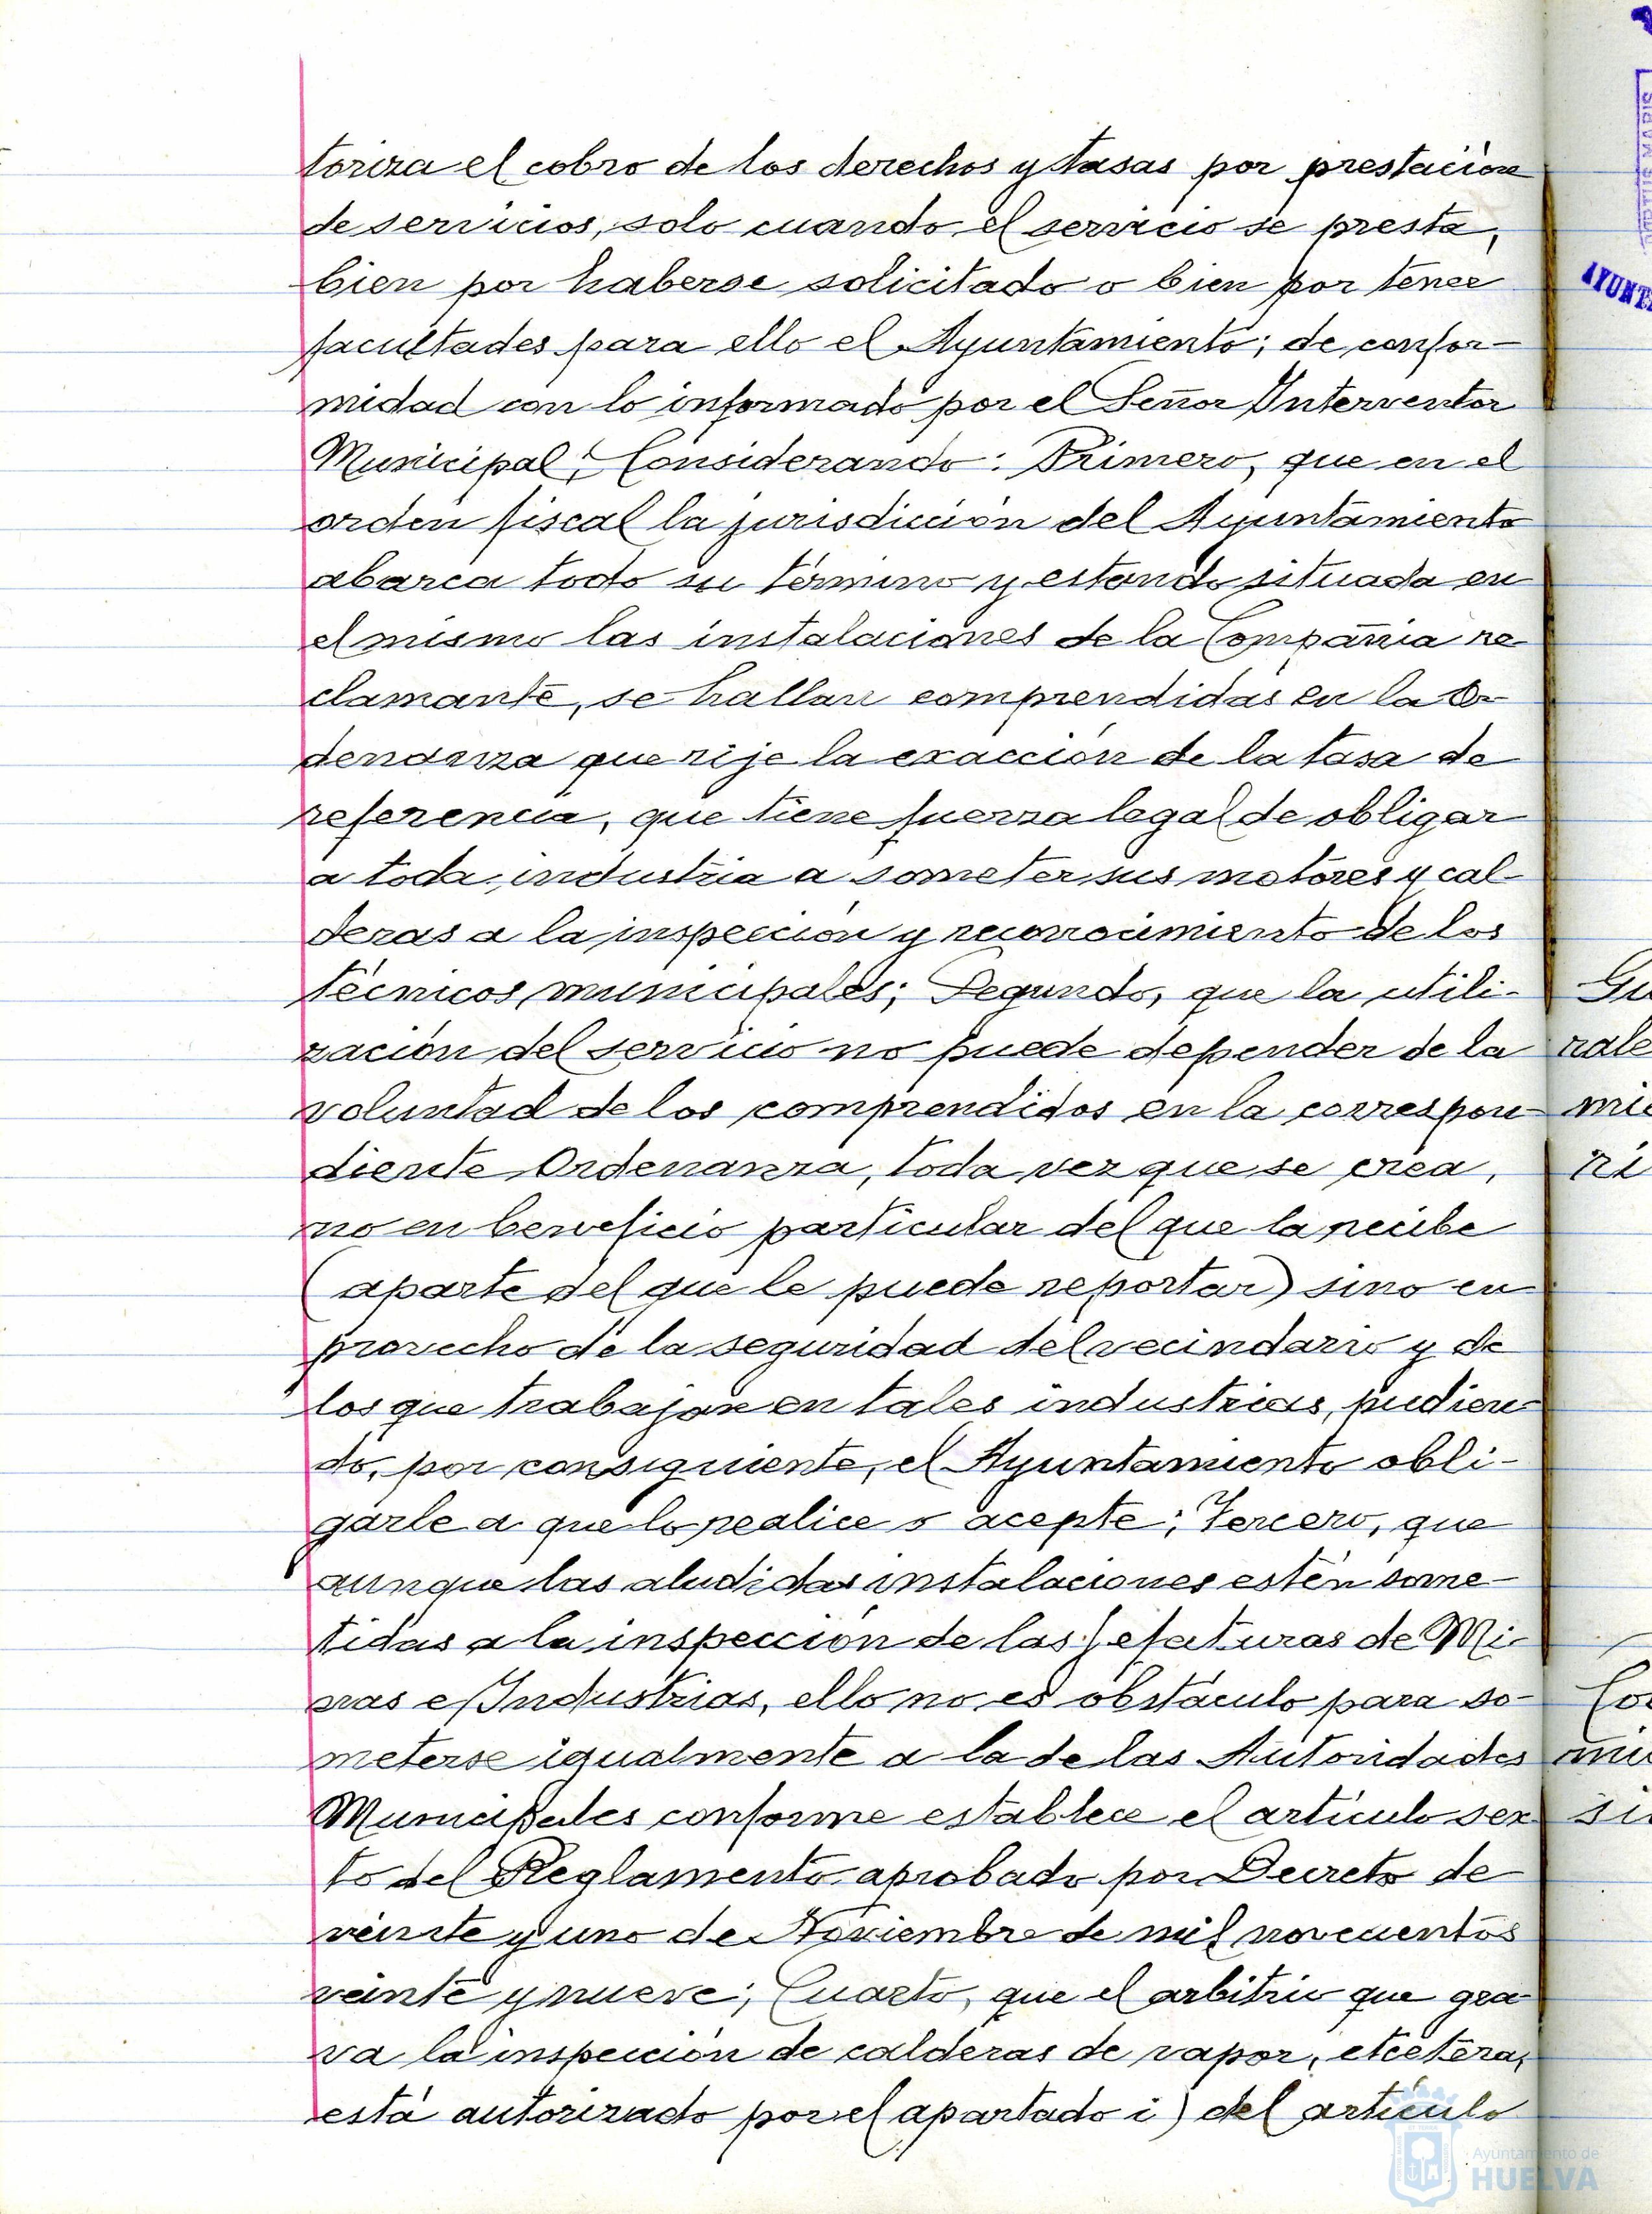 toriza el cobro de los derechos y tasas por prestación
de servicios, solo cuando el servicio se presta,
bien por haberse solicitado o bien por tener
facultades para ello el Ayuntamiento; de confor-
midad con lo informado por el Señor Interventor
Municipal; Considerando: Primero, que en el
orden fiscal la jurisdicción del Ayuntamiento
abarca todo su término y estando situada en
el mismo las instalaciones de la Compañia re
clamante, se hallan comprendidas en la Or-
denanza que rije la exacción de la tasa de
referencia, que tiene fuerza legal de obligar
a toda industria a someter sus motores y cal-
deras a la inspección y reconocimiento de los
técnicos municipales; Segundo, que la utili-
zación del servicio no puede depender de la
voluntad de los comprendidos en la correspon-
diente Ordenanza, toda vez que se crea,
no en beneficio particular del que la recibe
(aparte del que le puede reportar) sino en
provecho de la seguridad del vecindario y de
los que trabajan en tales industrias, pudien-
do, por consiguiente, el Ayuntamiento obli-
garle a que lo realice o acepte; Tercero, que
aunque las aludidas instalaciones estén some-
tidas a la inspección de las Jefaturas de Mi-
nas e Industrias, ello no es obstáculo para so-
meterse igualmente a la de las Autoridades
Municipales conforme establece el artículo sex
to del Reglamento aprobado por Decreto de
veinte y uno de Noviembre de mil novecientos
veinte y nueve; Cuarto, que el arbitrio que gra
va la inspección de calderas de vapor, etcétera,
está autorizado por el apartado i) del artículo
Ayuntamiento de
HUELVA